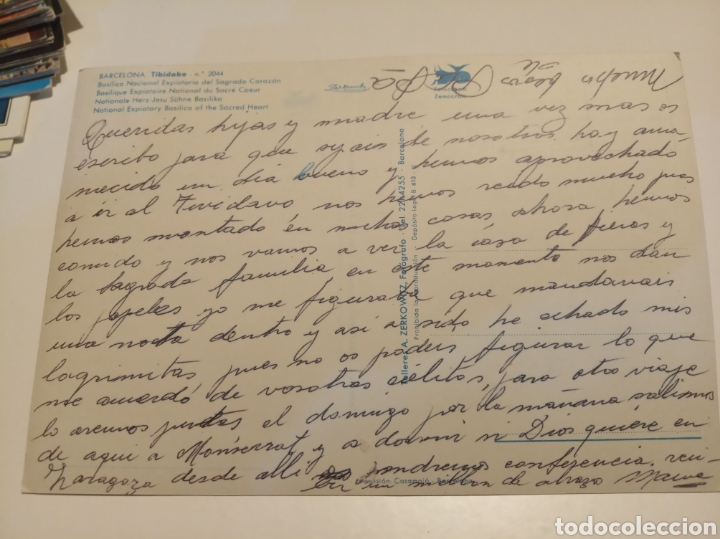 BARCELONA Tibidabo - n.º 2044
Basílica Nacional Expiatoria del Sagrado Corazón
Basilique Expiatoire National du Sacré Coeur
Nationale Herz Jesu Sühne Basilika
National Expiatory Basilica of the Sacred Heart
Zerkowitz
muchos besos de
Queridas hijas y madre una vez mas os
escribo para que sepais de nosotros hoy ama
necido un día bueno y hemos aprovechado
a ir al Tividavo nos hemos reido mucho pues
hemos montado en muchas cosas ahora hemos
comido y nos vamos a ver la casa de fieras y
la sagrada familia en este momento nos dan
los papeles yo me figuraba que mandavais
una nota dentro y asi a sido he echado mis
lagrimitas pues no os podeis figurar lo que
me acuerdó de vosotras solitas, para otro viaje
lo aremos juntas el domingo por la mañana salimos
de aqui a Monserrat y a dormir si Dios quiére en
Zaragoza desde alli pondremos conferencia reci-
bir un millon de abrazos
Talleres A. ZERKOWITZ, Fotógrafo - Tel. 2214255 - Barcelona
Prohibida la reproducción - Depósito legal B 413
comototocoleccion